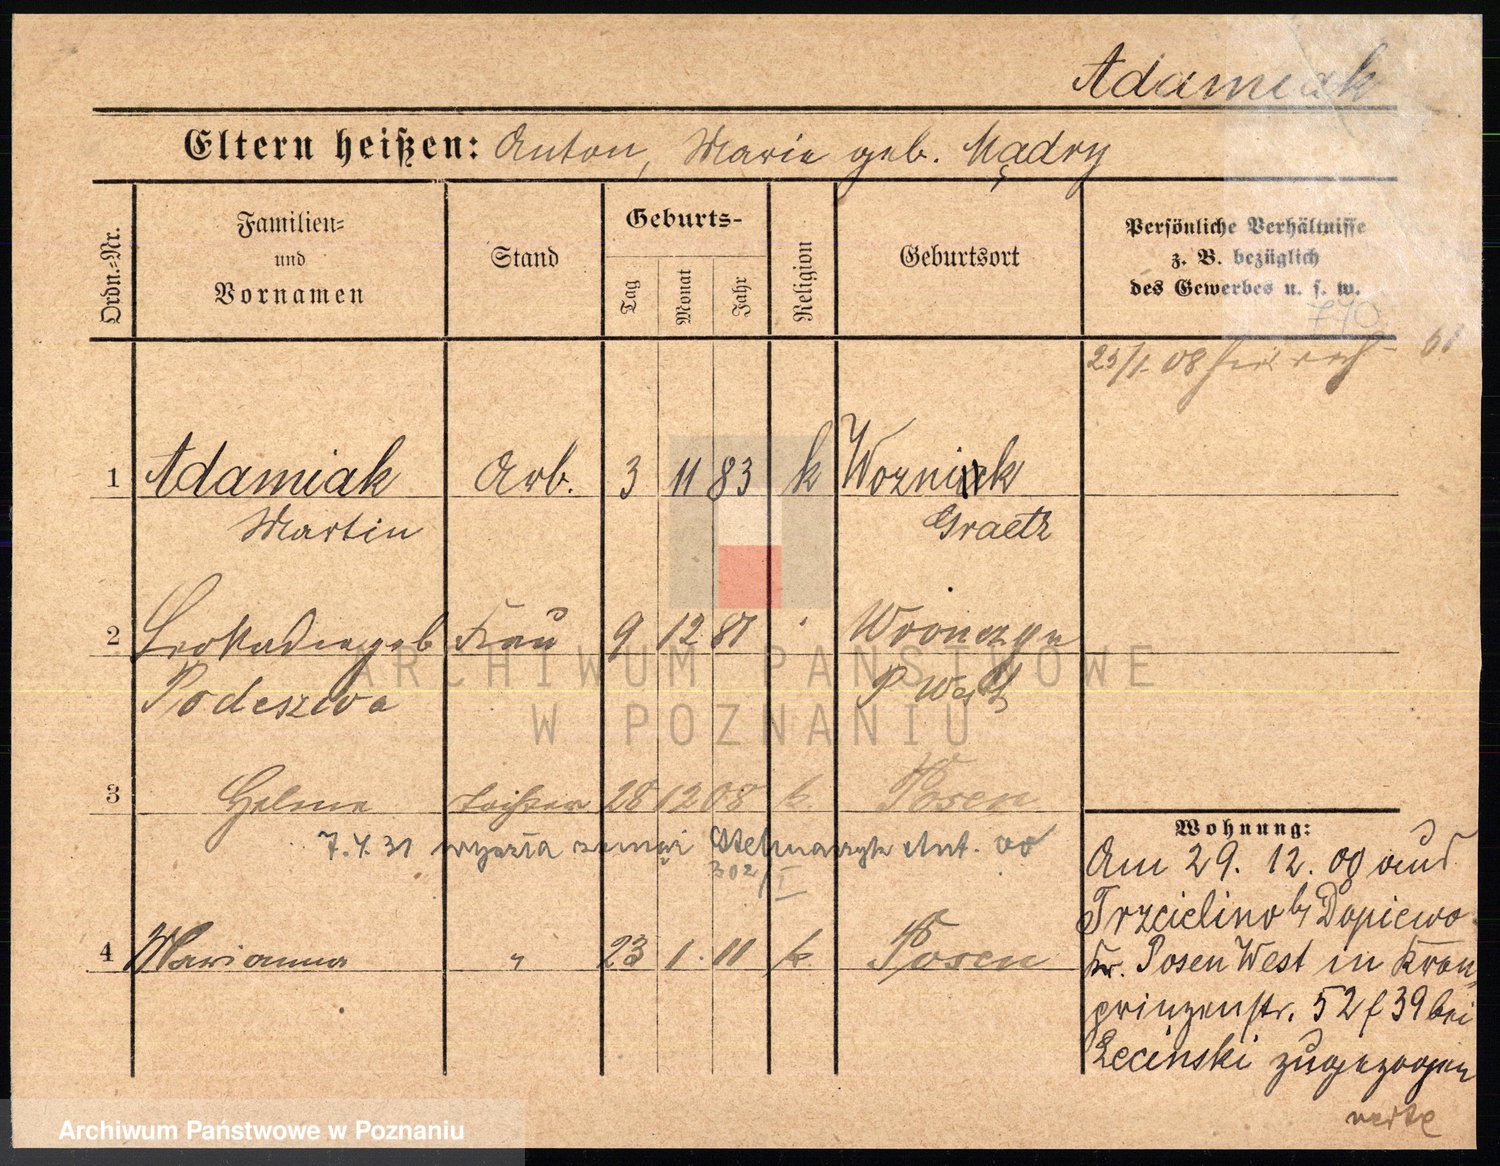 Adamiak
Eltern heißen: Anton, Marie geb. Mądry
Ordn.-Nr.
Familien-
und
Vornamen
Stand
Geburts-
Tag
Monat
Jahr
Religion
Geburtsort
Persönliche Verhältnisse
z. B. bezüglich
des Gewerbes u. s. w.
770
25/1. 08
1 Adamiak Arb. 3 11 83 k Wozniek
Martin Graetz
2 Leokadia geb Frau 9 12 87 Wronczyn
Podeszwa P West
3 Helene Tochter 28 12 08 k. Posen
7.4.31 wyszła zamąż Stelmaszyk Ant.
302/I
4 Marianna " 23 1. 11 k. Posen
Wohnung:
Am 29. 12. 00 aus
Trzcielino b/ Dopiewo
Kr. Posen West in Kron-
prinzenstr. 52 f 39 bei
Lecinski zugezogen
verte
ARCHIWUM PAŃSTWOWE
W POZNANIU
Archiwum Państwowe w Poznaniu